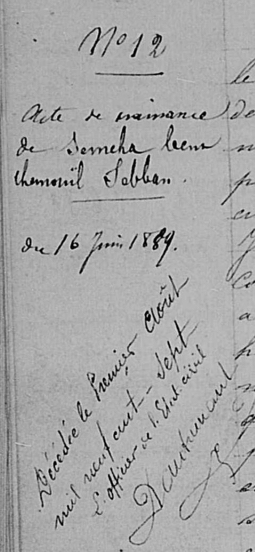 N° 12
Acte de naissance
de Semeha ben
chemouïl Sebban.
du 16 Juin 1889.
Décédée le Premier Août
mil neuf cent - sept
L'officier de l'Etat civil